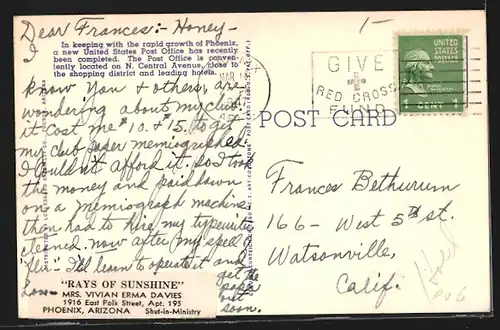 Dear Frances:- Honey-
I
In keeping with the rapid growth of Phoenix,
a new United States Post Office has recently
been completed. The Post Office is conven-
iently located on N. Central Avenue, close to
the shopping district and leading hotels.
know you & others, are
wondering about my club.
it cost me $10. & $15. to get
my club paper memiographed
I couldn't afford it. So I took
the money and paid down
on a memiograph machine
then had to hire my typewriter
cleaned. now after my spell
"flu". I'll learn to operate it and
get the
paper
out
soon.
Love-
"RAYS OF SUNSHINE"
MRS. VIVIAN ERMA DAVIES
1916 East Polk Street, Apt. 195
PHOENIX, ARIZONA Shut-in-Ministry
1-
MAR
GIVE
RED CROSS
FUND
UNITED
STATES
POSTAGE
1 CENT 1
POST CARD
Frances Bethurum
166- West 5th st.
Watsonville,
Calif.